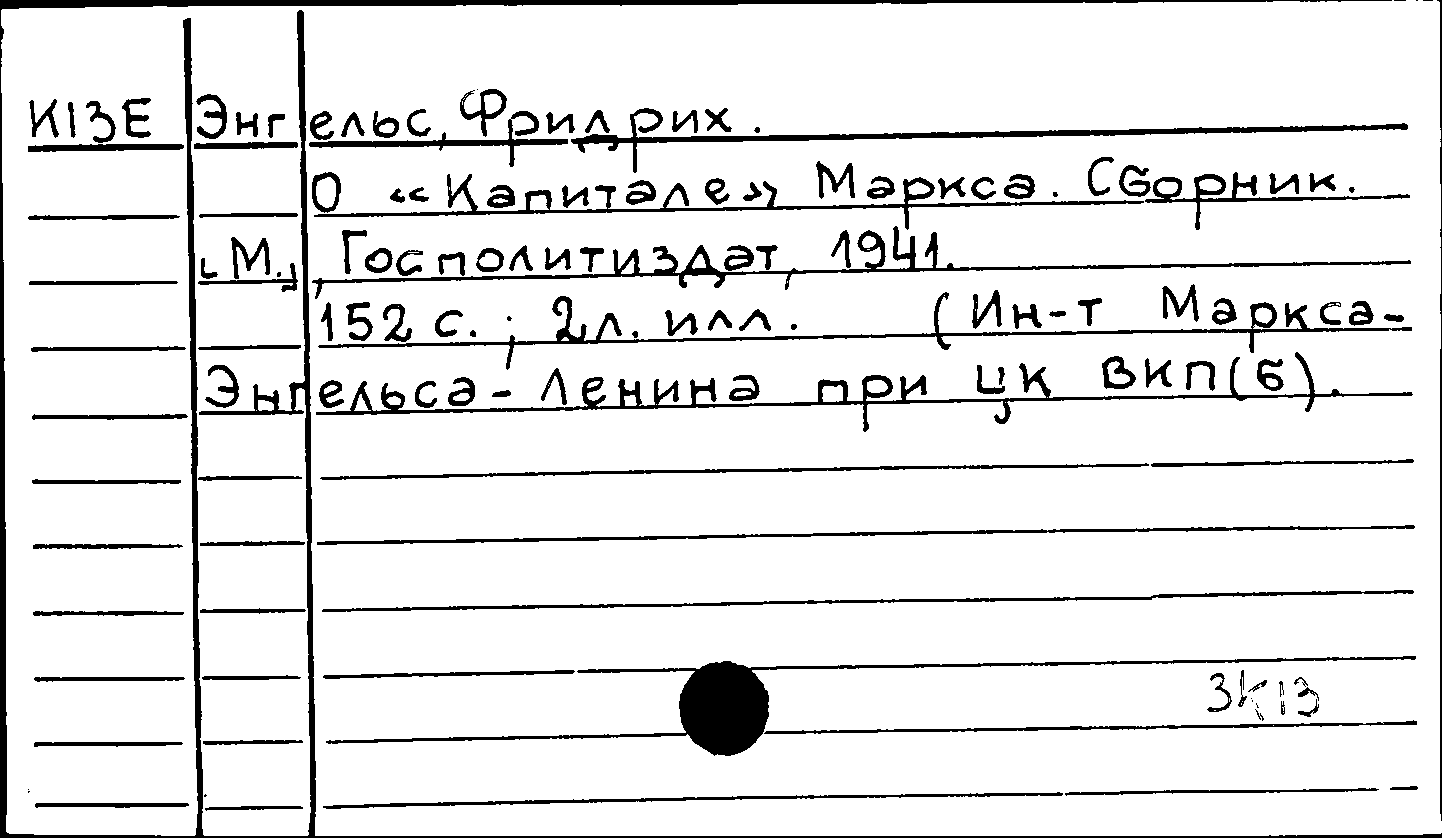 К13Е Энгельс, Фридрих.
О «Капитале» Маркса. Сборник.
[М.], Госполитиздат, 1941.
152 с.; 2 л. илл. (Ин-т Маркса-
Энгельса-Ленина при ЦК ВКП(б).
3К13